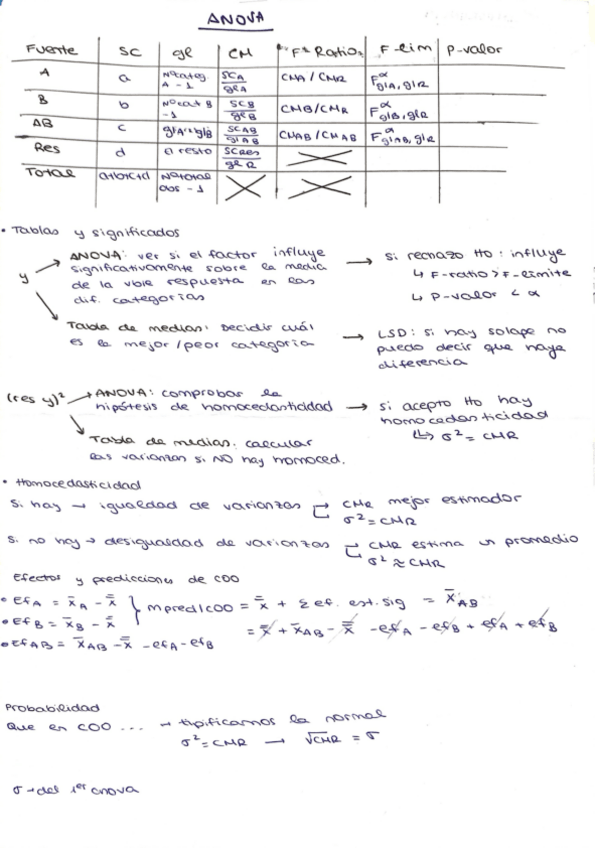 ANOVA
Fuente SC gl CM F-Ratio F-lim P-valor
A a Nº categ A - 1 SCA/glA CMA / CMR F^α glA, glR
B b Nº cat B - 1 SCB/glB CMB/CMR F^α glB, glR
AB c glA · glB SCAB/glAB CMAB/CMAB F^α glAB, glR
Res d el resto SCres/glR
Total a+b+c+d Nº total obs - 1
• Tablas y significados
y → ANOVA: ver si el factor influye significativamente sobre la media de la vble respuesta en las dif. categorías → si rechazo Ho: influye
↳ F-ratio > F-limite
↳ P-valor < α
↘ Tabla de medias: Decidir cuál es la mejor/peor categoría → LSD: si hay solape no puedo decir que haya diferencia
(res y)² → ANOVA: comprobar la hipótesis de homocedasticidad → si acepto Ho hay homocedasticidad
↳ σ² = CMR
↘ Tabla de medias: calcular las varianzas si NO hay homoced.
• Homocedasticidad
Si hay → igualdad de varianzas → CMR mejor estimador
σ² = CMR
Si no hay → desigualdad de varianzas → CMR estima un promedio
σ² ≈ CMR
Efectos y predicciones de COO
• EfA = x̄A - x̿ } m pred/COO = x̿ + Σ ef. est. sig = x̄AB
• EfB = x̄B - x̿ = x̿ + x̄AB - x̿ - efA - efB + efA + efB
• EfAB = x̄AB - x̿ - efA - efB
Probabilidad
Que en COO .... → tipificamos la normal
σ² = CMR → √CMR = σ
σ → del 1er anova